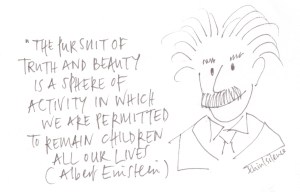 "THE PURSUIT OF
TRUTH AND BEAUTY
IS A SPHERE OF
ACTIVITY IN WHICH
WE ARE PERMITTED
TO REMAIN CHILDREN
ALL OUR LIVES
(Albert Einstein)